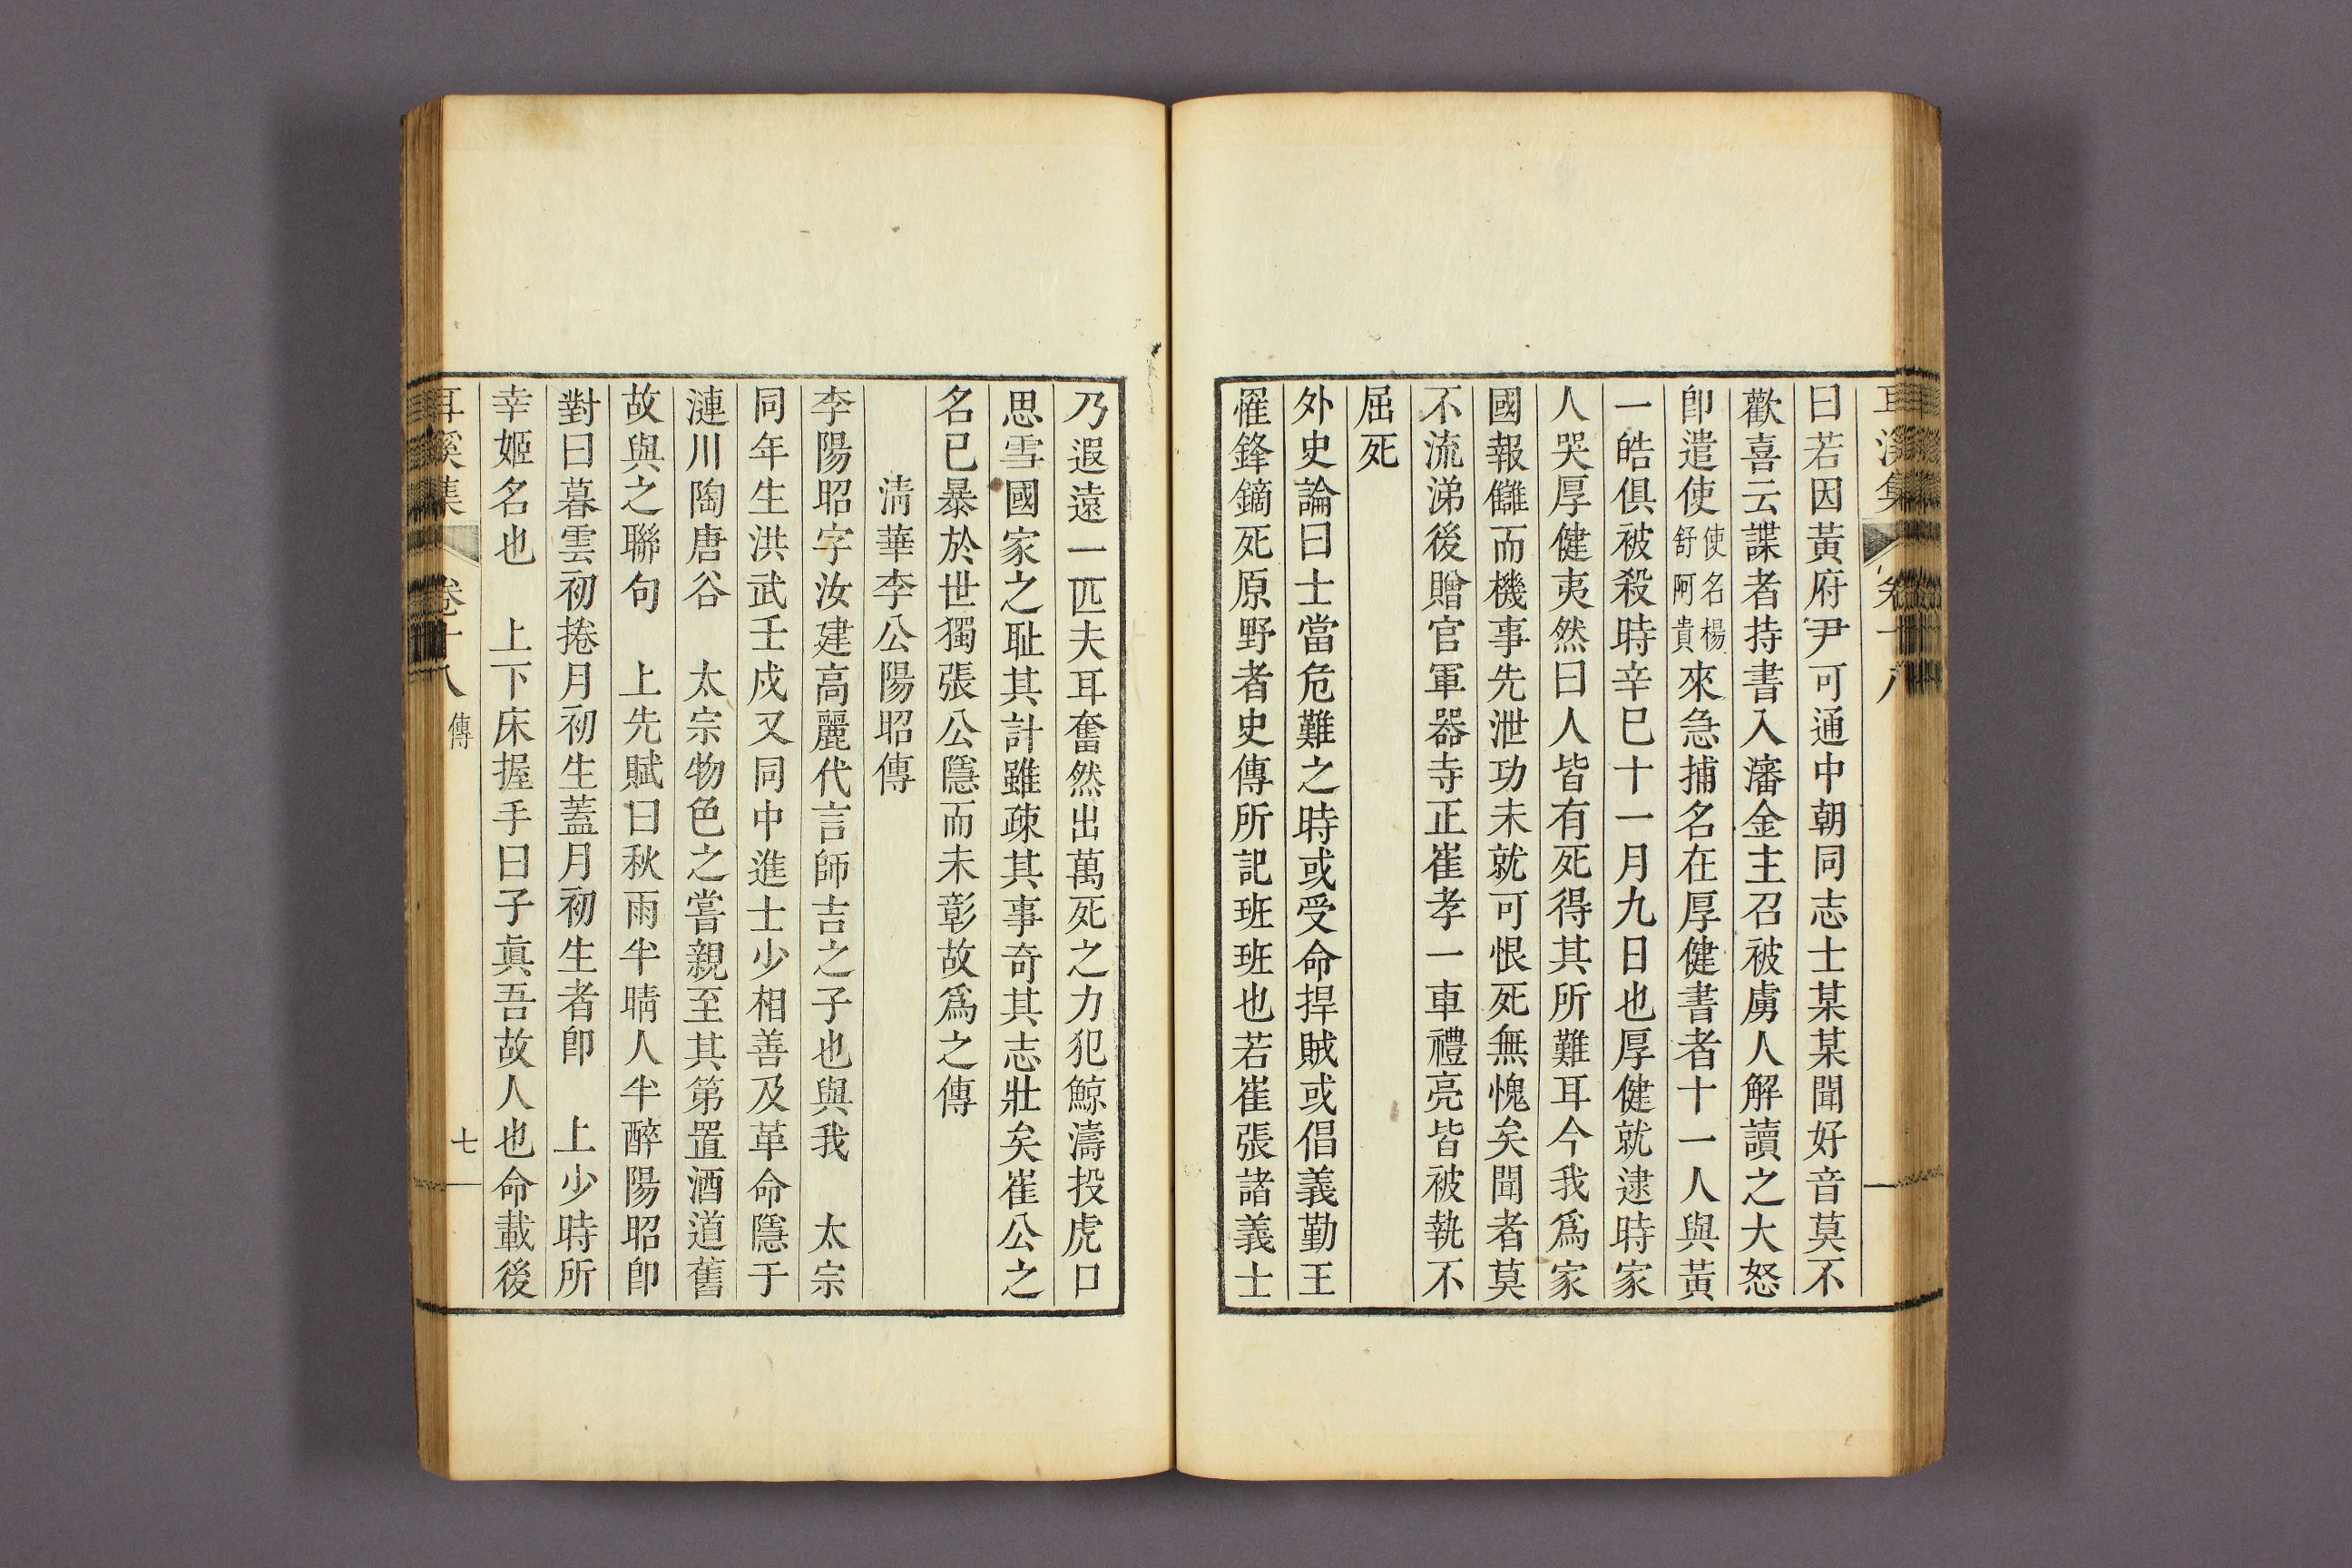 耳溪集 卷十八
曰若因黃府尹可通中朝同志士某某聞好音莫不
歡喜云諜者持書入瀋金主召被虜人解讀之大怒
卽遣使使名名楊舒阿貴來急捕名在厚健書者十一人與黃
一皓俱被殺時辛巳十一月九日也厚健就逮時家
人哭厚健夷然曰人皆有死得其所難耳今我爲家
國報讎而機事先泄功未就可恨死無愧矣聞者莫
不流涕後贈官軍器寺正崔孝一車禮亮皆被執不
屈死
外史論曰士當危難之時或受命捍賊或倡義勤王
罹鋒鏑死原野者史傳所記班班也若崔張諸義士
乃遐遠一匹夫耳奮然出萬死之力犯鯨濤投虎口
思雪國家之耻其計雖疎其事奇其志壯矣崔公之
名已暴於世獨張公隱而未彰故爲之傳
淸華李公陽昭傳
李陽昭字汝建高麗代言師吉之子也與我 太宗
同年生洪武壬戌又同中進士少相善及革命隱于
漣川陶唐谷 太宗物色之嘗親至其第置酒道舊
故與之聯句 上先賦曰秋雨半晴人半醉陽昭卽
對曰暮雲初捲月初生蓋月初生者卽 上少時所
幸姬名也 上下床握手曰子眞吾故人也命載後
耳溪集 卷十八 傳 七